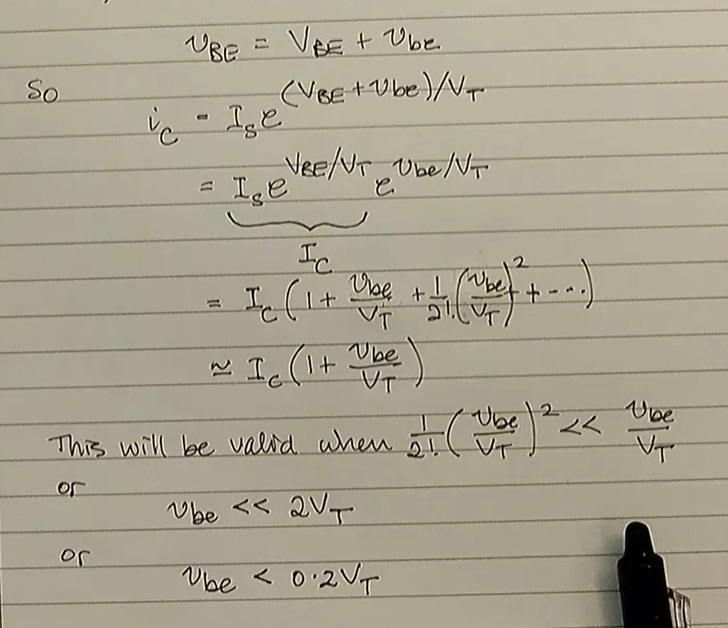 v_BE = V_BE + v_be
So
i_C = I_s e^(V_BE + v_be)/V_T
= I_s e^V_BE/V_T e^v_be/V_T
I_C
= I_C (1 + v_be/V_T + 1/2! (v_be/V_T)^2 + ....)
≈ I_C (1 + v_be/V_T)
This will be valid when 1/2! (v_be/V_T)^2 << v_be/V_T
or
v_be << 2V_T
or
v_be < 0.2V_T